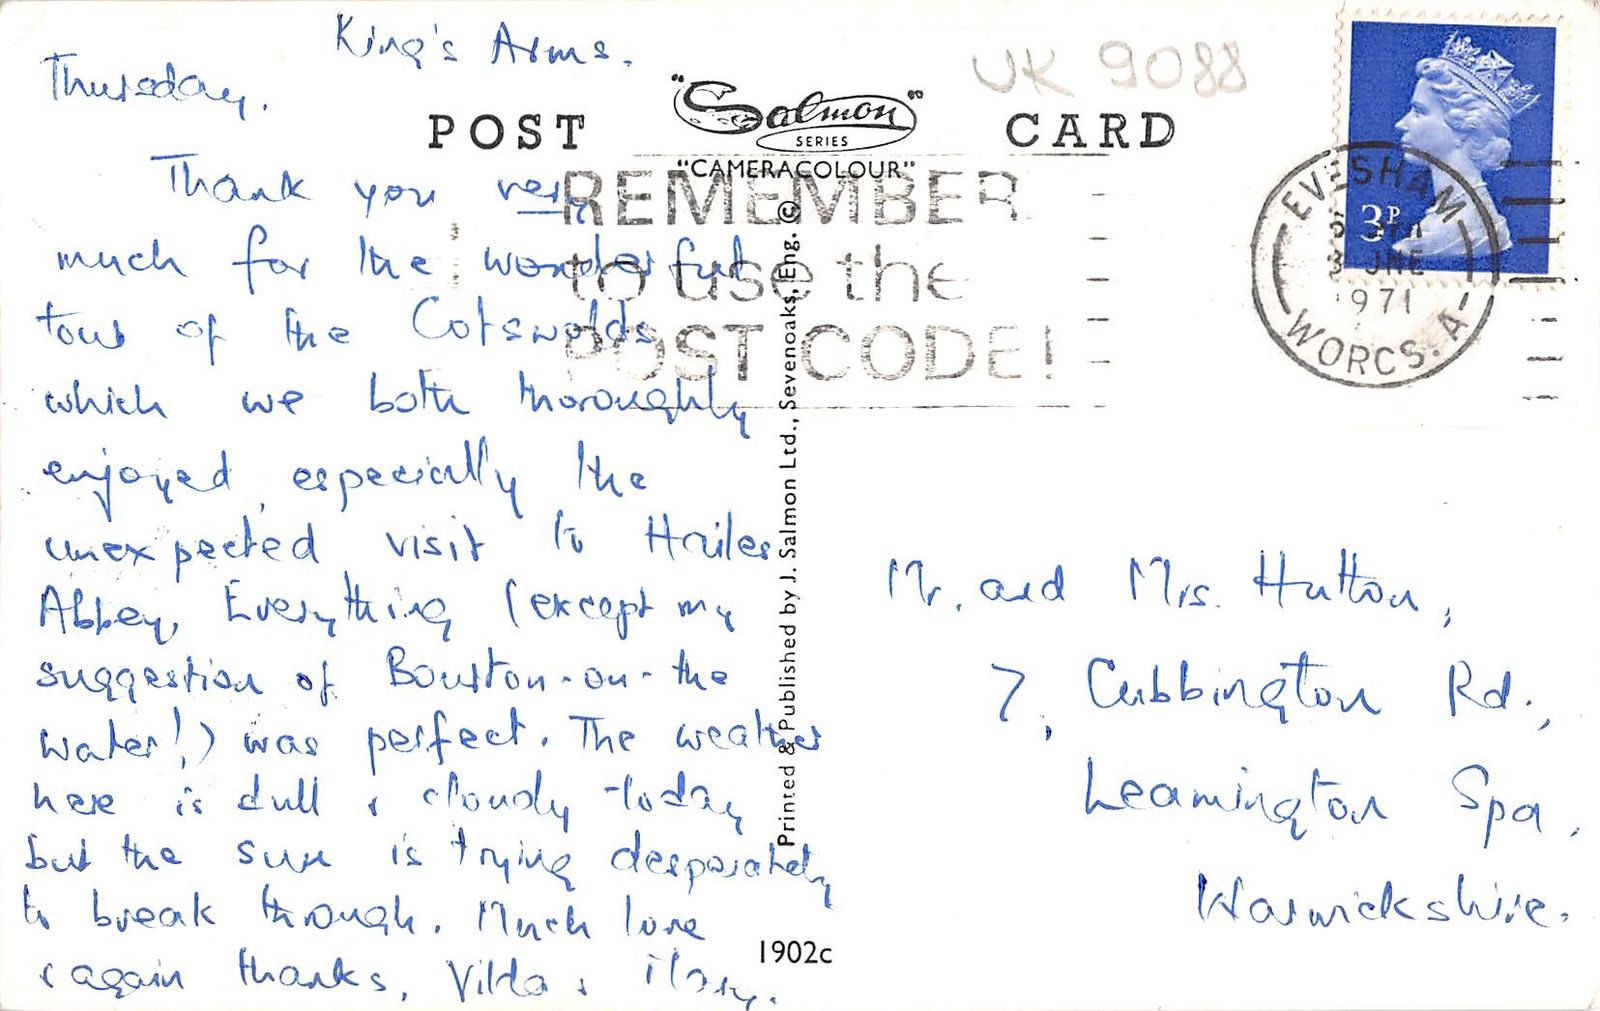 King's Arms.
Thursday.
Thank you very
much for the wonderful
tour of the Cotswolds
which we both thoroughly
enjoyed, especially the
unexpected visit to Hailes
Abbey. Everything (except my
suggestion of Bourton-on-the
water!) was perfect. The weather
here is dull & cloudy today
but the sun is trying desperately
to break through. Much love
& again thanks, Vilda &
POST CARD
"Salmon"
SERIES
"CAMERACOLOUR"
UK 9088
REMEMBER
to use the
POST CODE!
EVESHAM
JNE
1971
WORCS. A
3P
Printed & Published by J. Salmon Ltd., Sevenoaks, Eng. ©
Mr. and Mrs. Hutton,
7, Cubbington Rd.,
Leamington Spa,
Warwickshire.
1902c